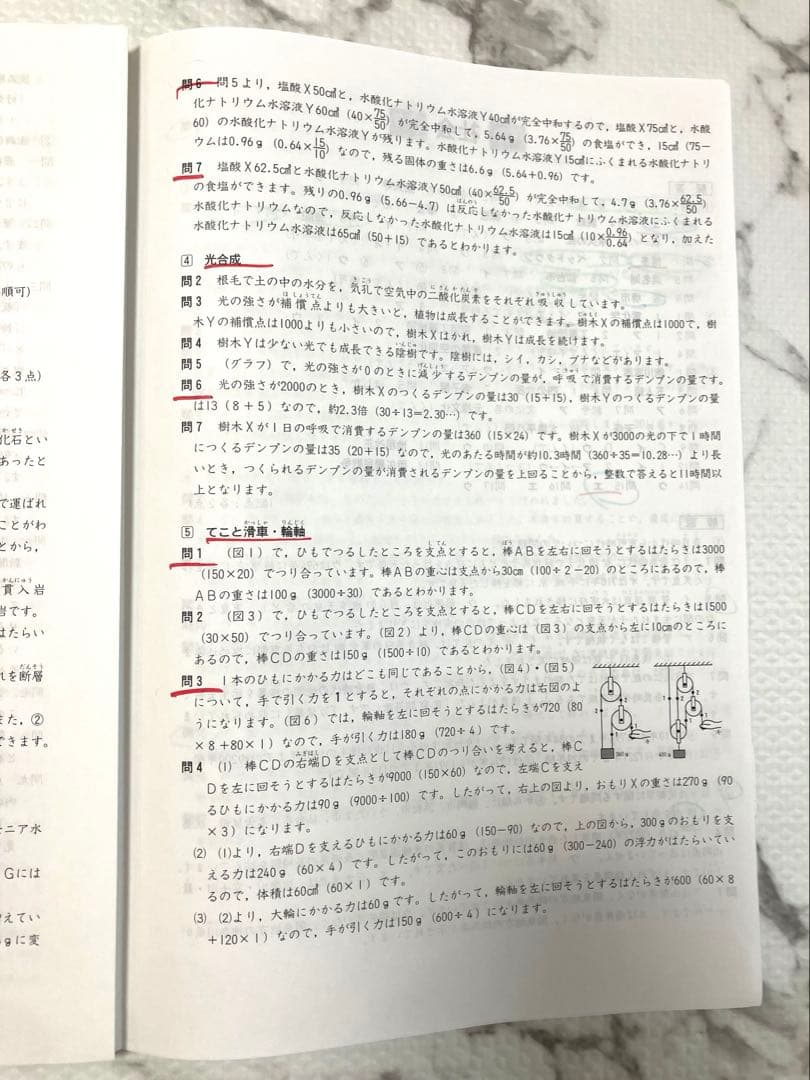 順可)
各3点)
化石とい
あったと
で運ばれ
ことがわ
とから,
貫入岩
岩です。
はたらい
れを断層
また, ②
できます。
モニア水
Gには
増えてい
gに変
問6 問5より, 塩酸X50㎤と, 水酸化ナトリウム水溶液Y40㎤が完全中和するので, 塩酸X75㎤と, 水酸
化ナトリウム水溶液Y60㎤ (40×75/50) が完全中和して, 5.64g (3.76×75/50) の食塩ができ, 15㎤ (75−
60) の水酸化ナトリウム水溶液Yが残ります。水酸化ナトリウム水溶液Y15㎤にふくまれる水酸化ナトリ
ウムは0.96g (0.64×15/10) なので, 残る固体の重さは6.6g (5.64+0.96) です。
問7 塩酸X62.5㎤と水酸化ナトリウム水溶液Y50㎤ (40×62.5/50) が完全中和して, 4.7g (3.76×62.5/50)
の食塩ができます。残りの0.96g (5.66−4.7) は反応しなかった水酸化ナトリウム水溶液にふくまれる
水酸化ナトリウムなので, 反応しなかった水酸化ナトリウム水溶液は15㎤ (10×0.96/0.64) となり, 加えた
水酸化ナトリウム水溶液は65㎤ (50+15) であるとわかります。
4 光合成
問2 根毛で土の中の水分を, 気孔で空気中の二酸化炭素をそれぞれ吸収しています。
問3 光の強さが補償点よりも大きいと, 植物は成長することができます。樹木Xの補償点は1000で, 樹
木Yの補償点は1000よりも小さいので, 樹木Xはかれ, 樹木Yは成長を続けます。
問4 樹木Yは少ない光でも成長できる陰樹です。陰樹には, シイ, カシ, ブナなどがあります。
問5 (グラフ) で, 光の強さが0のときに減少するデンプンの量が, 呼吸で消費するデンプンの量です。
問6 光の強さが2000のとき, 樹木Xのつくるデンプンの量は30 (15+15), 樹木Yのつくるデンプンの量
は13 (8+5) なので, 約2.3倍 (30÷13=2.30…) です。
問7 樹木Xが1日の呼吸で消費するデンプンの量は360 (15×24) です。樹木Xが3000の光の下で1時間
につくるデンプンの量は35 (20+15) なので, 光のあたる時間が約10.3時間 (360÷35=10.28…) より長
いとき, つくられるデンプンの量が消費されるデンプンの量を上回ることから, 整数で答えると11時間以
上となります。
5 てこと滑車・輪軸
問1 (図1) で, ひもでつるしたところを支点とすると, 棒ABを左右に回そうとするはたらきは3000
(150×20) でつり合っています。棒ABの重心は支点から30cm (100÷2−20) のところにあるので, 棒
ABの重さは100g (3000÷30) であるとわかります。
問2 (図3) で, ひもでつるしたところを支点とすると, 棒CDを左右に回そうとするはたらきは1500
(30×50) でつり合っています。(図2) より, 棒CDの重心は (図3) の支点から左に10cmのところに
あるので, 棒CDの重さは150g (1500÷10) であるとわかります。
問3 1本のひもにかかる力はどこも同じであることから, (図4)・(図5)
について, 手で引く力を1とすると, それぞれの点にかかる力は右図のよ
うになります。(図6) では, 輪軸を左に回そうとするはたらきが720 (80
×8+80×1) なので, 手が引く力は180g (720÷4) です。
問4 (1) 棒CDの右端Dを支点として棒CDのつり合いを考えると, 棒C
Dを左に回そうとするはたらきが9000 (150×60) なので, 左端Cを支え
るひもにかかる力は90g (9000÷100) です。したがって, 右上の図より, おもりXの重さは270g (90
×3) になります。
(2) (1)より, 右端Dを支えるひもにかかる力は60g (150−90) なので, 上の図から, 300gのおもりを支
える力は240g (60×4) です。したがって, このおもりには60g (300−240) の浮力がはたらいてい
るので, 体積は60㎤ (60×1) です。
(3) (2)より, 大輪にかかる力は60gです。したがって, 輪軸を左に回そうとするはたらきが600 (60×8
+120×1) なので, 手が引く力は150g (600÷4) になります。